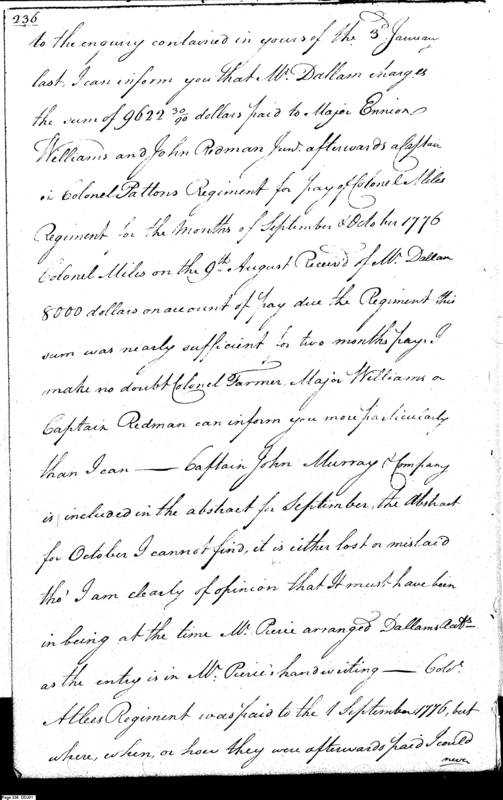 236
to the enquiry contained in yours of the 3d. January
last, I can inform you that Mr. Dallam charges
the sum of 9622 30/90 dollars paid to Major Ennion
Williams and John Redman Junr. afterwards a Captain
in Colonel Pattons Regiment for pay of Colonel Miles
Regiment for the Months of September & October 1776
Colonel Miles on the 9th August Received of Mr. Dallam
8000 dollars on account of pay due the Regiment this
sum was nearly sufficient for two months pay. I
make no doubt Colonel Farmer, Major Williams or
Captain Redman can inform you more particularly
than I can — Captain John Murray & Company
is included in the abstract for September, the Abstract
for October I cannot find, it is either lost or mislaid
tho' I am clearly of opinion that It must have been
in being at the time Mr. Pierce arranged Dallams Accts.
as the entry is in Mr. Pierce's handwriting — Colo.
Atlees Regiment was paid to the 1 September 1776, but
where, when, or how they were afterwards paid I could
never
Page 236